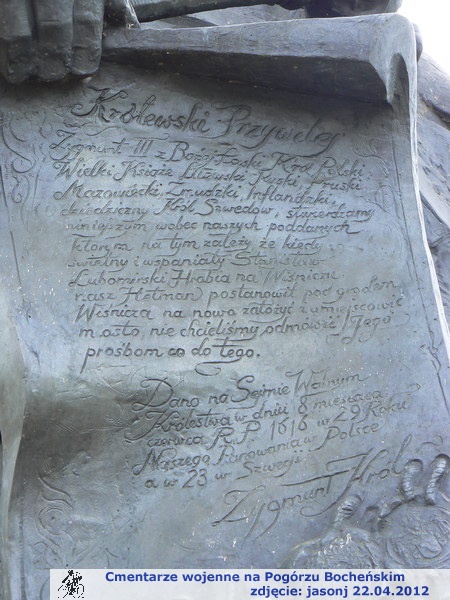 Królewski Przywilej
Zygmunt III z Bożej Łaski Król Polski
Wielki Książe Litewski Ruski, Pruski
Mazowiecki, Żmudzki, Inflandzki,
dziedziczny Król Szwedów, stwierdzamy
niniejszym wobec naszych poddanych
którym na tym zależy, że kiedy
świetny i wspaniały Stanisław
Lubomirski Hrabia na Wiśniczu
nasz Hetman postanowił pod grodem
Wiśnicza na nowo założyć i umiejscowić
miasto, nie chcieliśmy odmówić Jego
prośbom co do tego.
Dano na Sejmie Walnym
Królestwa w dniu 8 miesiąca
czerwca R.P. 1616 w 29 Roku
Naszego Panowania w Polsce
a w 23 w Szwecji.
Zygmunt Król
Cmentarze wojenne na Pogórzu Bocheńskim
zdjęcie: jasonj 22.04.2012